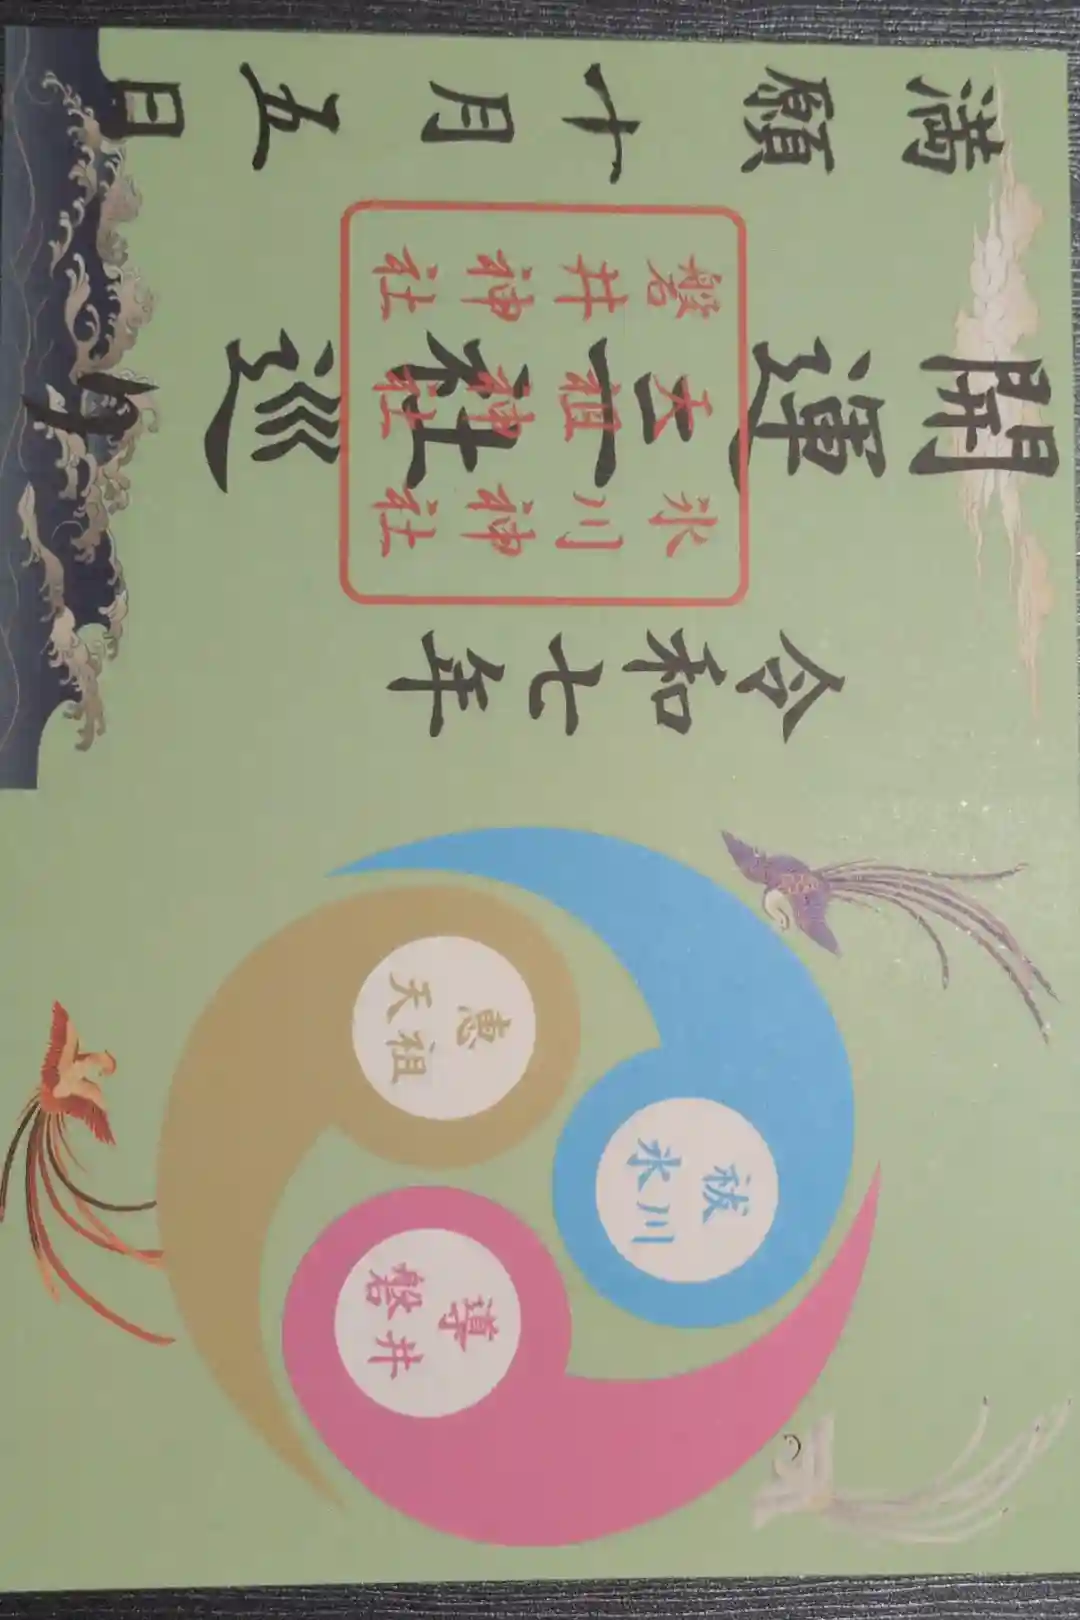 令和七年
開運三社巡り
満願十月五日
氷川神社
天祖神社
磐井神社
祓
氷川
恵
天祖
導
磐井